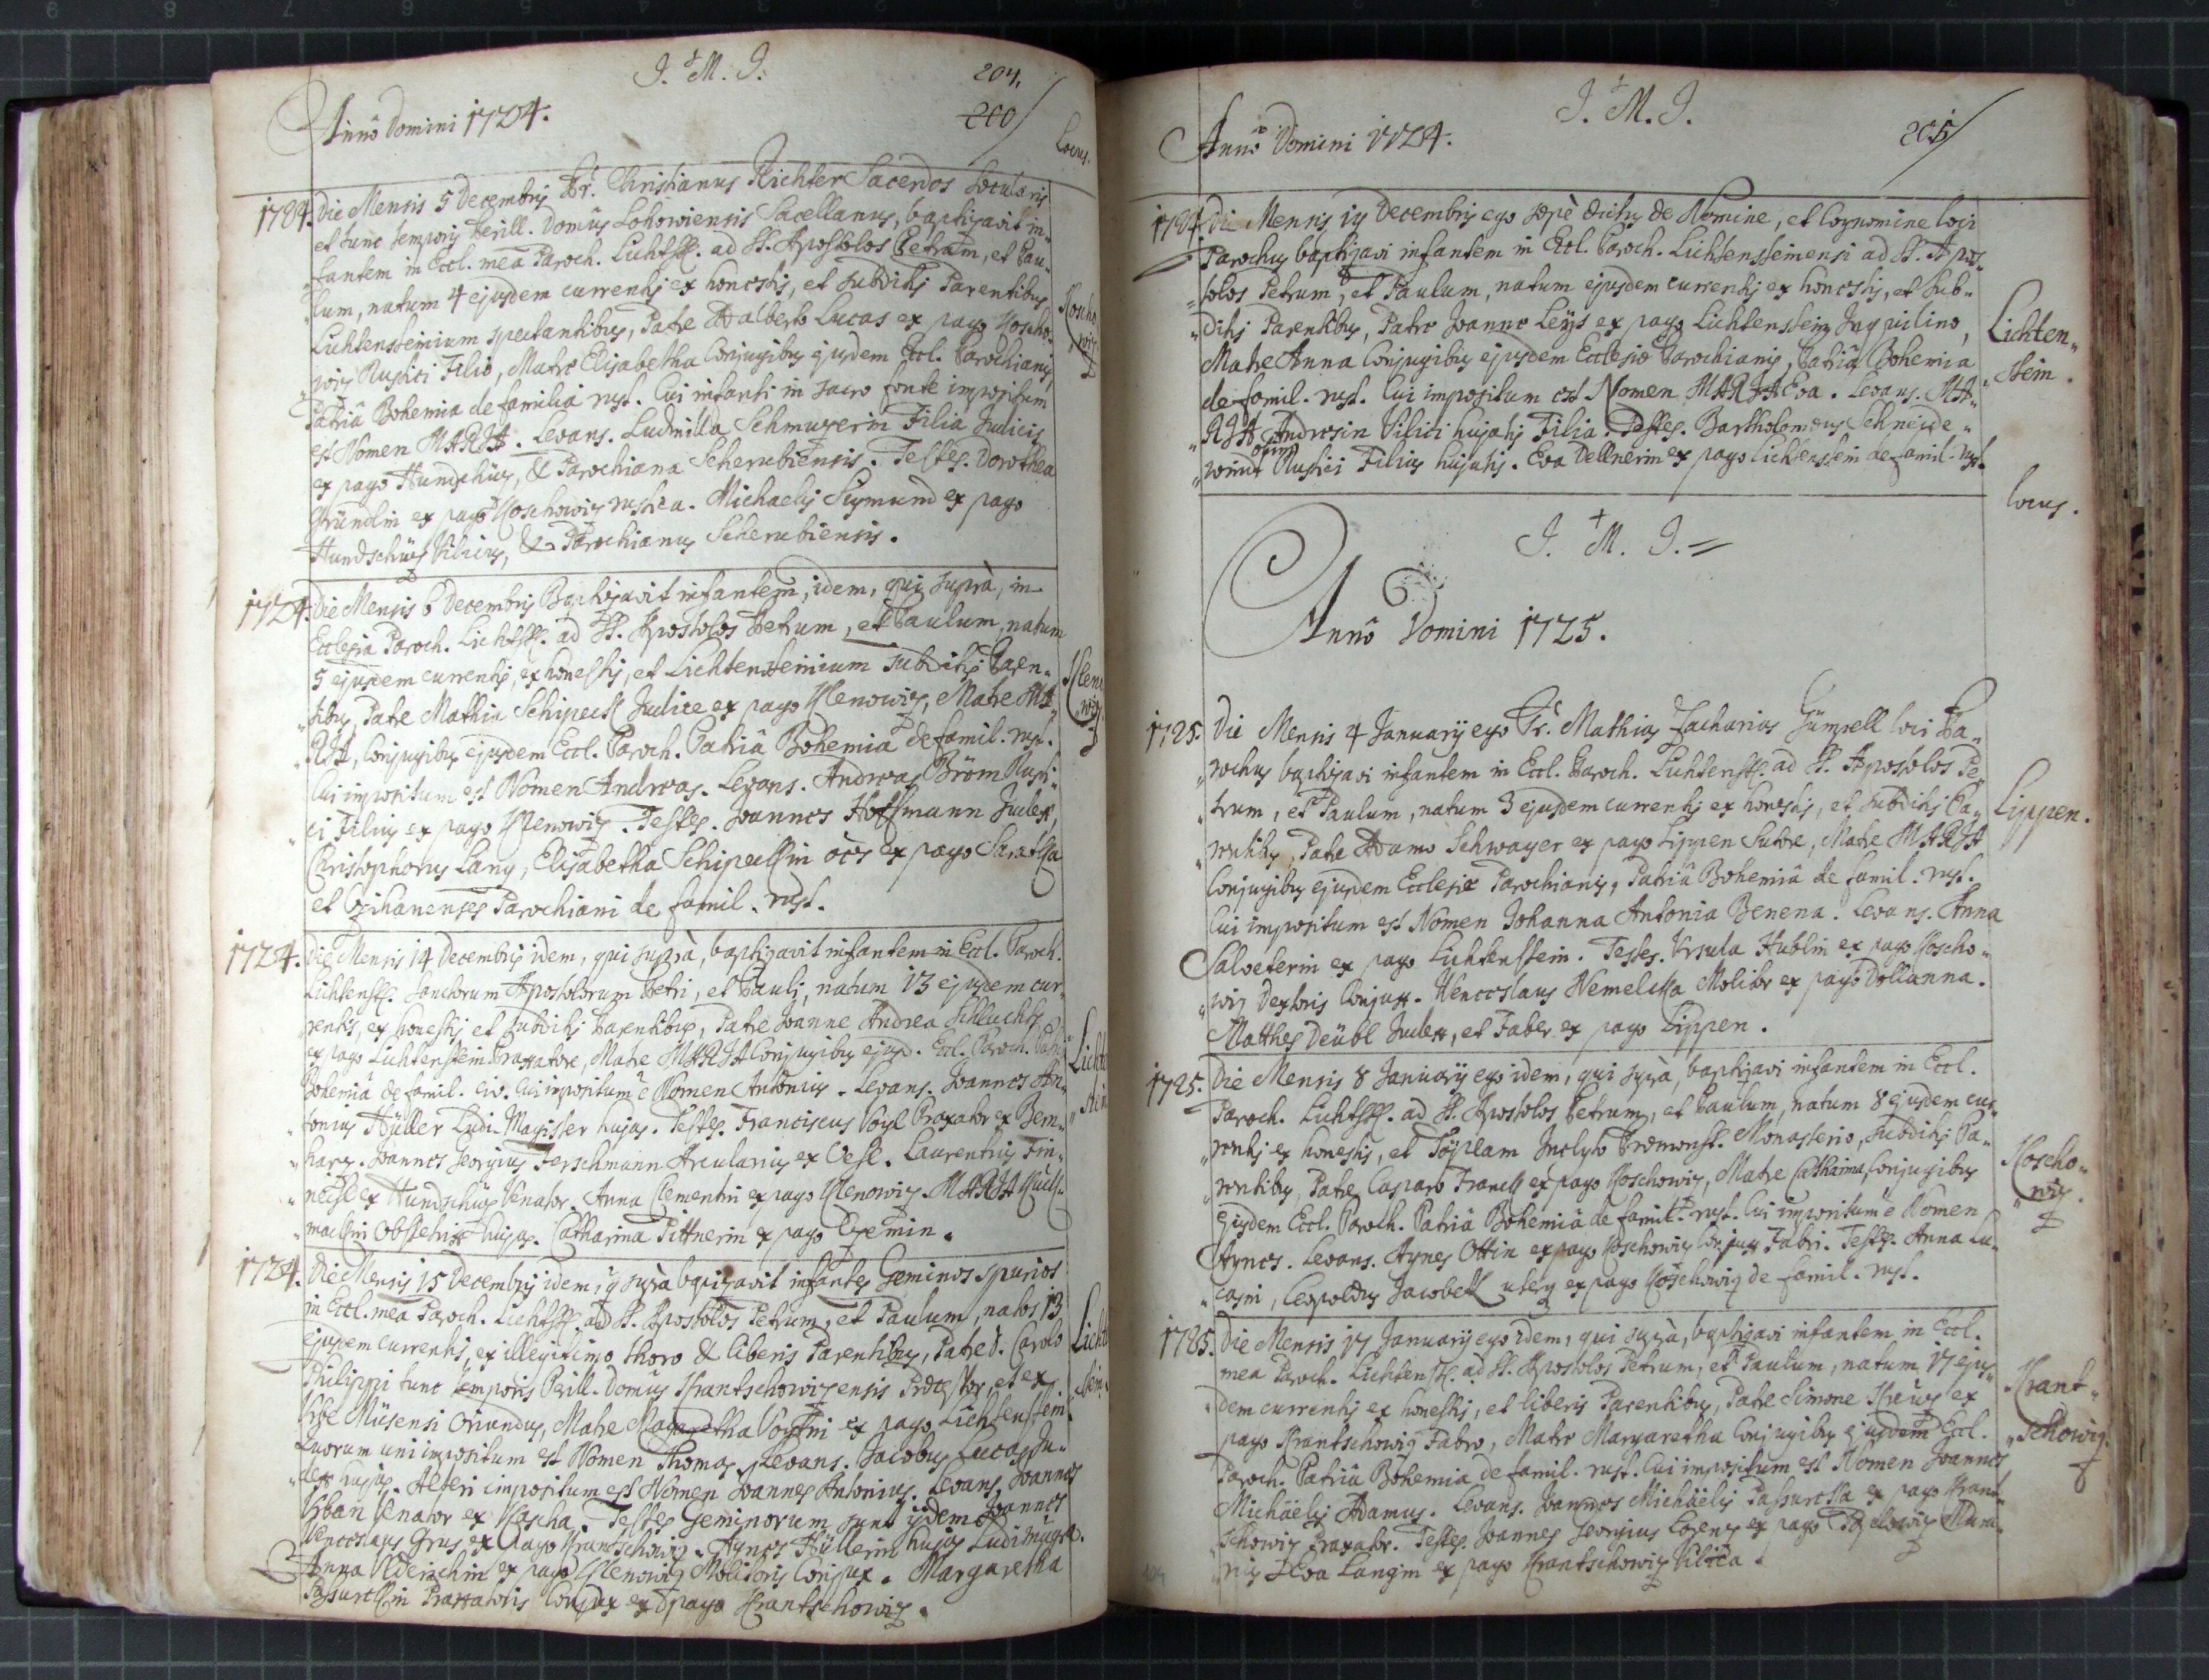 J. M. J.
204.
200
Annô Domini 1724.
Locus.
1724. Die Mensis 5 Decembris Dr. Christianus Richter Sacerdos Secularis
et tunc temporis Perill. Domûs Lohowiensis Sacellanus, baptizavit in-
fantem in Eccl. mea Paroch. Lichtst. ad SS. Apostolos Petrum, et Pau-
lum, natum 4 ejusdem currentis ex honestis, et subditis Parentibus
Lichtensteinium spectantibus, Patre Adalberto Lucas ex pago Koscho-
wiz Rustici Filio, Matre Elisabetha Conjugibus ejusdem Eccl. Parochianis,
Patriâ Bohemia de familiâ rust. Cui infanti in sacro fonte impositum
est Nomen MARIA. Levans. Ludmilla Schmuzerin Filia Judicis
ex pago Hundschüz, & Parochiana Scherubiensis. Testes. Dorothea
Gründlin ex pago Koschowiz rustica. Michaelis Sigmund ex pago
Hundschüz Vilicus, & Parochianus Scherubiensis.
Koscho
wiz
1724. Die Mensis 6 Decembris Baptizavit infantem, idem, qui suprà, in
Ecclesia Paroch. Lichtst. ad SS. Apostolos Petrum, et Paulum, natum
5 ejusdem currentis, ex honestis, et Lichtensteinium subditis Paren-
tibus, Patre Mathia Schipeck Judice ex pago Hlenowiz, Matre MA-
RIA, Conjugibus ejusdem Eccl. Paroch. Patriâ Bohemia de famil. rust.
Cui impositum est Nomen Andreas. Levans. Andreas Bröm Rusti-
ci Filius ex pago Hlenowiz. Testes. Joannes Hoffmann Judex,
Christophorus Lang, Elisabetha Schipeckin oes ex pago
et Parochiani de famil. rust.
Hleno
wiz
1724. Die Mensis 14 Decembris idem, qui suprà, baptizavit infantem in Eccl. Paroch.
Lichtenst. Sanctorum Apostolorum Petri, et Pauli, natum 13 ejusdem cur-
rentis, ex honestis et subditis Parentibus, Patre Joanne Andrea Schlucht
ex pago Lichtenstein Braxatore, Matre MARIA Conjugibus ejusd. Eccl. Paroch. Patriâ
Bohemiâ de famil. civ. Cui impositum e Nomen Antonius. Levans. Joannes An-
tonius Hüller Ludi Magister hujas. Testes. Franciscus Voyl Braxator ex Bem-
harz. Joannes Georgius Ferschmann Arcularius ex Vese. Laurentius Fin-
ex Hundschüz Venator. Anna Clementin ex pago Hlenowiz. MARIA
Obstetrix hujas. Catharina Pittnerin ex pago Czemin.
Lichten
stein
1724. Die Mensis 15 Decembris idem, q suprà baptizavit infantes Geminos spurios
in Eccl. mea Paroch. Lichtst. ad SS. Apostolos Petrum, et Paulum, natos 13
ejusdem currentis, ex illegitimo thoro & liberis Parentibus, Patre D. Carolo
Philippi tunc temporis Perill. Domûs Krantschowizensis et ex
Urbe Misensi oriundus, Matre Margaretha Voytin ex pago Lichtenstein
Quorum uni impositum est Nomen Thomas, Levans. Jacobus Lucas Ju-
dex hujas. Alteri impositum est Nomen Joannes Antonius. Levans, Joannes
Urban Venator ex Kascha. Testes Geminorum sunt ijdem Joannes
Wenceslaus Grus ex pago Krantschowiz. Agnes Hüllerin hujas Ludimagra.
Anna ex pago Hlenowiz Molitoris Conjux. Margaretha
Passureckin Braxatoris Conjux ex pago Krantschowiz.
Lichten
stein
J. M. J.
205
Annô Domini 1724.
1724. Die Mensis 19 Decembris ego sæpè dictus de Nomine, et Cognomine loci
Parochus baptizavi infantem in Eccl. Paroch. Lichtensteinensi ad SS. Apos-
tolos Petrum, et Paulum, natum ejusdem currentis ex honestis, et sub-
ditis Parentibus, Patre Joanne Leÿs ex pago Lichtenstein Inquilino,
Matre Anna Conjugibus ejusdem Ecclesiæ Parochianis, Patriâ Bohemia
de famil. rust. Cui impositum est Nomen MARIA Eva. Levans. MA-
RIA Andresin Vilici hujatis Filia. Testes. Bartholomeus Schneide-
wind olim Rustici Filius hujatis. Eva Dellnerin ex pago Lichtenstein de famil. rust.
Lichten-
stein.
locus.
J. M. J.
Annô Domini 1725.
1725. Die Mensis 4 Januarij ego Fr. Mathias Zacharias Gümpell loci Pa-
rochus baptizavi infantem in Eccl. Paroch. Lichtenst. ad SS. Apostolos Pe-
trum, et Paulum, natum 3 ejusdem currentis ex honestis, et subditis Pa-
rentibus, Patre Adamo Schwager ex pago Lippen Sutore, Matre MARIA
Conjugibus ejusdem Ecclesiæ Parochianis, Patriâ Bohemiâ de famil. rust.
Cui impositum est Nomen Johanna Antonia Benena. Levans. Anna
Salveterin ex pago Lichtenstein. Testes. Ursula Hüblin ex pago Koscho-
wiz Textoris Conjux. Wenceslaus Nemelka Molitor ex pago Dollanna.
Matthes Deübl Judex, et Faber ex pago Lippen.
Lippen.
1725. Die Mensis 8 Januarij ego idem, qui suprà, baptizavi infantem in Eccl.
Paroch. Lichtst. ad SS. Apostolos Petrum, et Paulum, natum 8 ejusdem cur-
rentis ex honestis, et Töplam Inclyto Præmonst. Monasterio, subditis Pa-
rentibus, Patre Casparo Franck ex pago Koschowiz, Matre Catharina, Conjugibus
ejusdem Eccl. Paroch. Patriâ Bohemiâ de famil. rust. Cui impositum e Nomen
Agnes. Levans. Agnes Ottin ex pago Koschowiz Conjux Fabri. Testes. Anna Lu-
casin, Leopoldus Jacobeck uterq ex pago Koschowiz de famil. rust.
Koscho-
wiz.
1725. Die Mensis 17 Januarij ego idem, qui suprà, baptizavi infantem in Eccl.
mea Paroch. Lichtenst. ad SS. Apostolos Petrum, et Paulum, natum 17 ejus-
dem currentis ex honestis, et liberis Parentibus, Patre Simone ex
pago Krantschowiz Fabro, Matre Margaretha Conjugibus ejusdem Eccl.
Paroch. Patriâ Bohemia de famil. rust. Cui impositum est Nomen Joannes
Michäelis Adamus. Levans. Joannes Michäelis Passurecka ex pago Krant-
schowiz Braxator. Testes. Joannes Georgius Lorenz ex pago
Eva Langin ex pago Krantschowiz Vilica.
Krant-
schowiz.